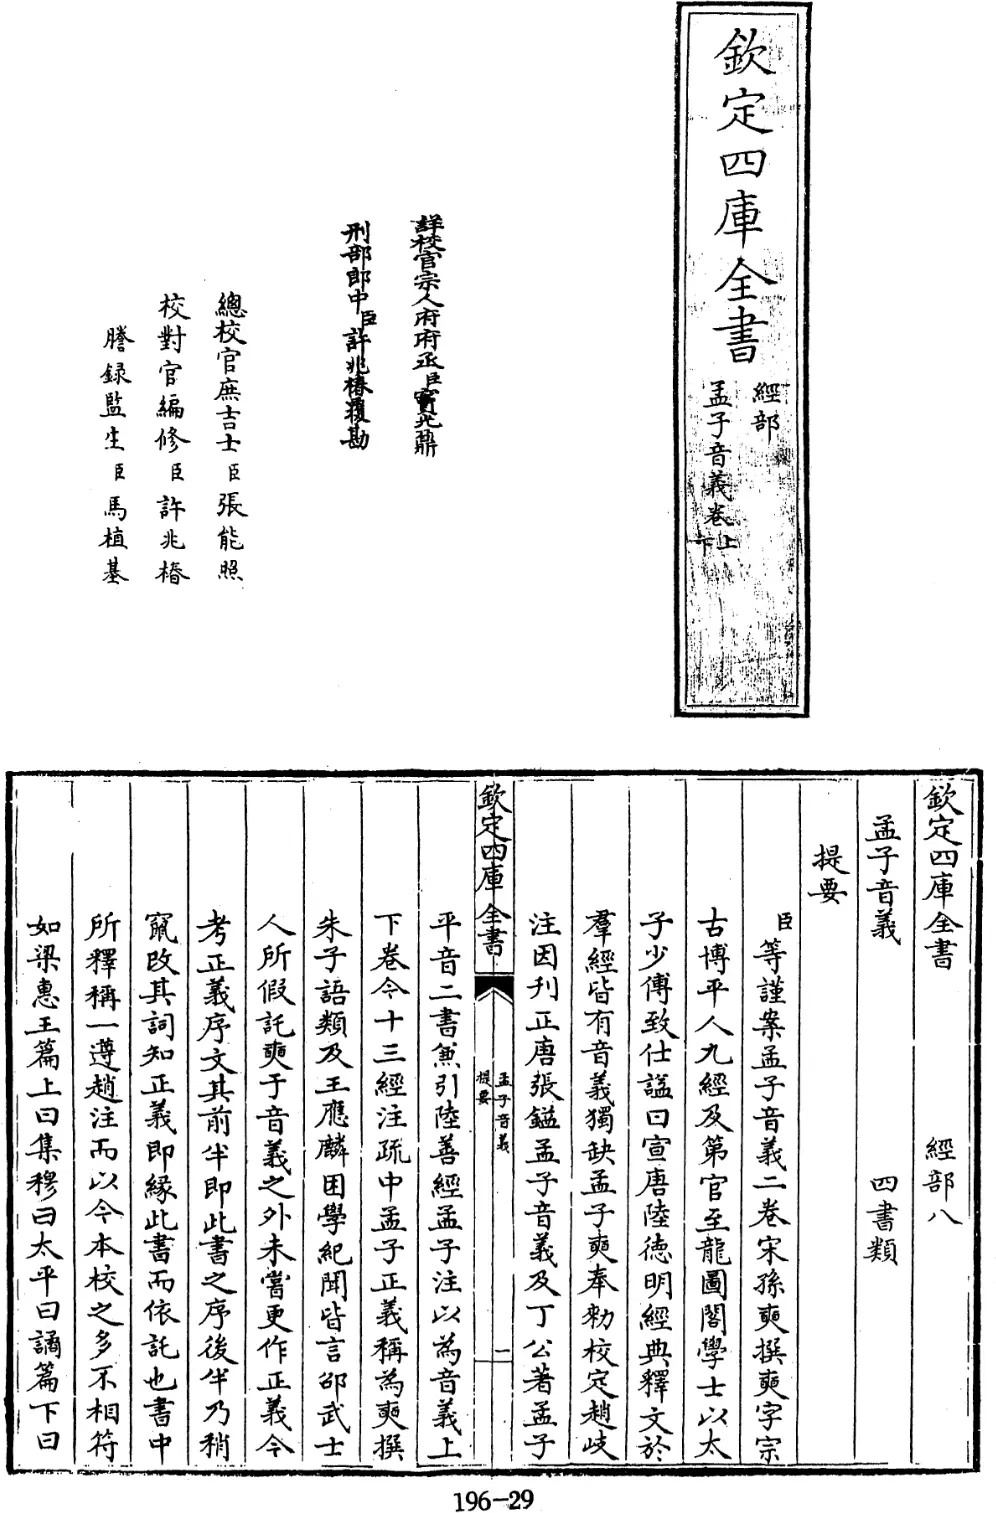 欽定四庫全書
經部
孟子音義卷上
下
詳校官宗人府府丞臣竇光鼐
刑部郎中臣許兆椿覆勘
總校官庶吉士臣張能照
校對官編修臣許兆椿
謄錄監生臣馬植基
欽定四庫全書 經部八
孟子音義 四書類
提要
臣等謹案孟子音義二卷宋孫奭撰奭字宗
古博平人九經及第官至龍圖閣學士以太
子少傅致仕諡曰宣唐陸德明經典釋文於
羣經皆有音義獨缺孟子奭奉勅校定趙岐
注因刊正唐張鎰孟子音義及丁公著孟子
欽定四庫全書
孟子音義
提要
一
平音二書兼引陸善經孟子注以為音義上
下卷今十三經注疏中孟子正義稱為奭撰
朱子語類及王應麟困學紀聞皆言邵武士
人所假託奭于音義之外未嘗更作正義今
考正義序文其前半即此書之序後半乃稍
竄改其詞知正義即緣此書而依託也書中
所釋稱一遵趙注而以今本校之多不相符
如梁惠王篇上曰集穆曰太平曰譎篇下曰
196-29